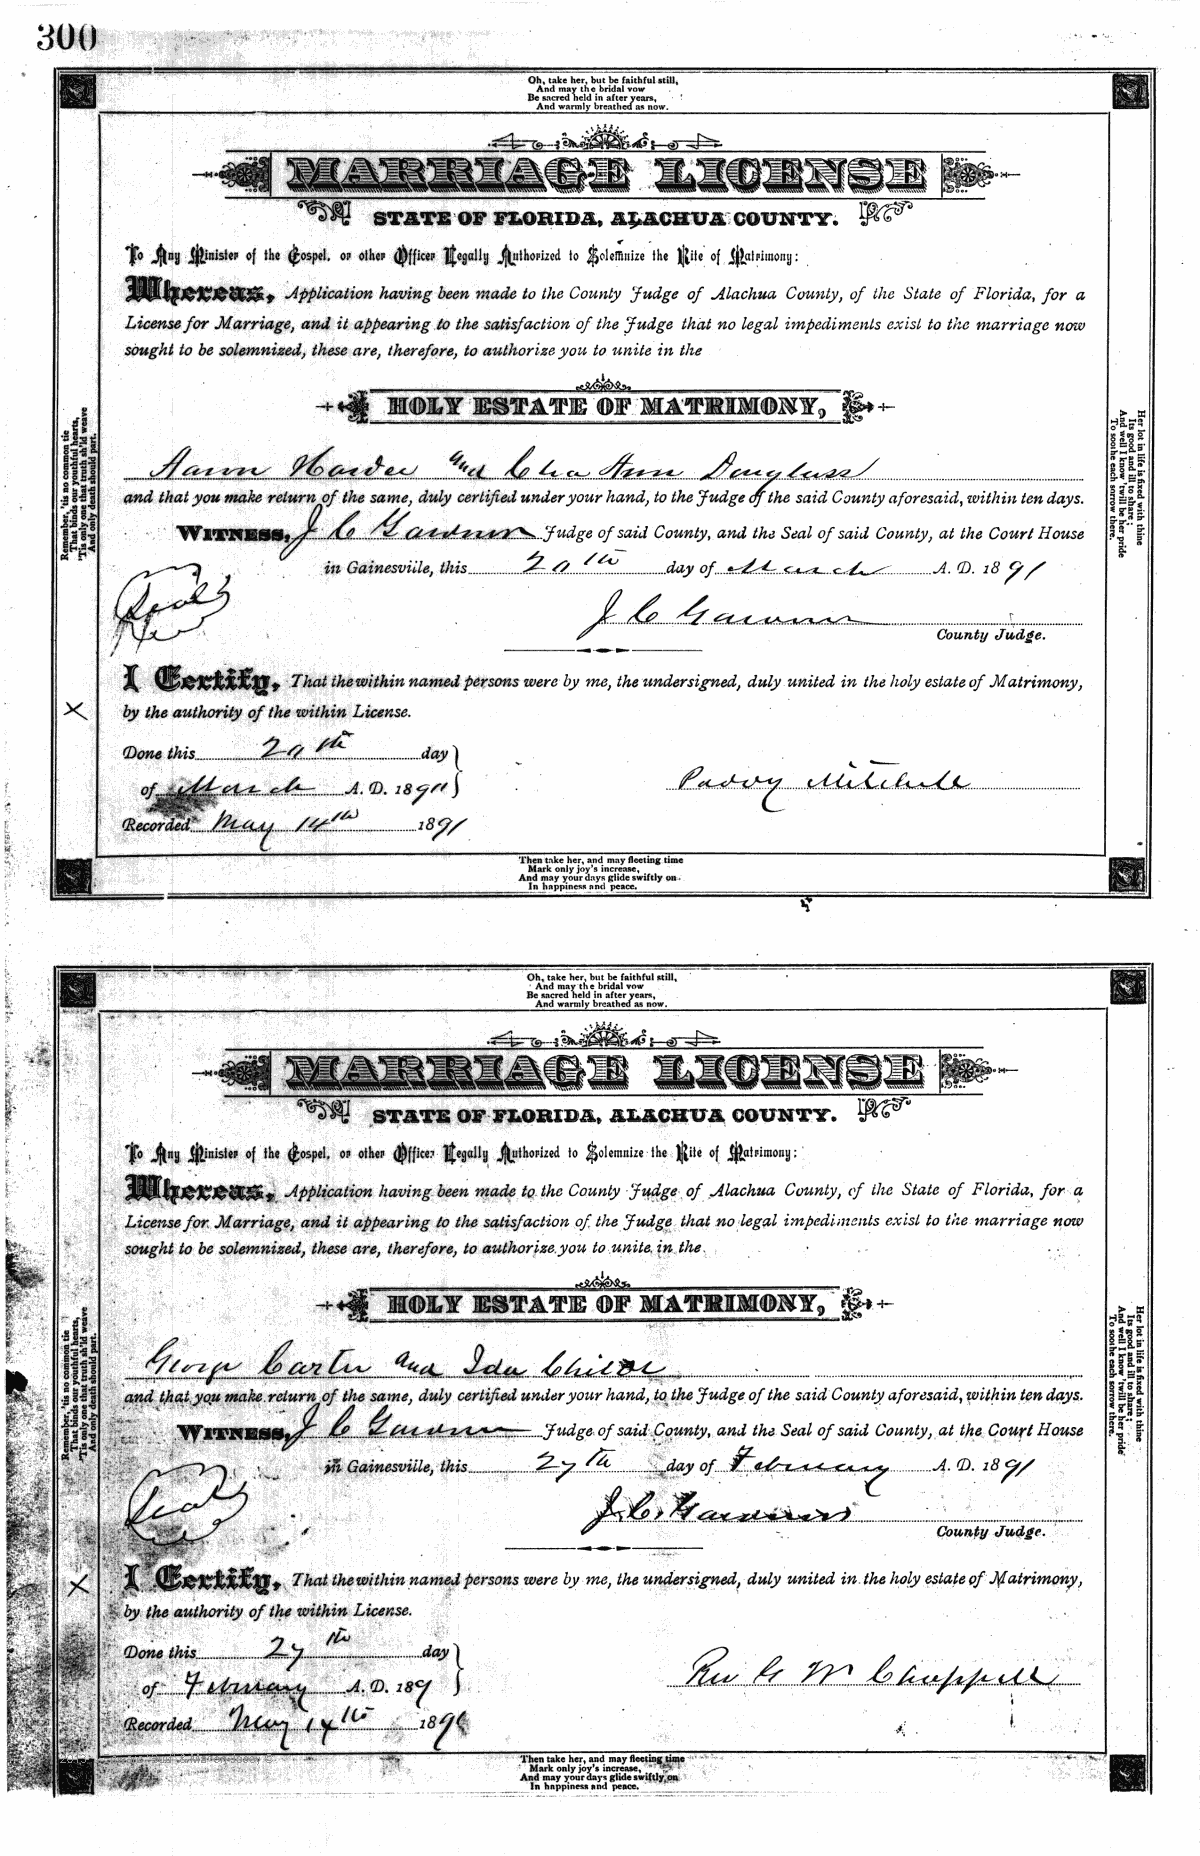 300
Oh, take her, but be faithful still,
And may the bridal vow
Be sacred held in after years,
And warmly breathed as now.
MARRIAGE LICENSE
STATE OF FLORIDA, ALACHUA COUNTY.
To Any Minister of the Gospel, or other Officer Legally Authorized to Solemnize the Rite of Matrimony:
Whereas, Application having been made to the County Judge of Alachua County, of the State of Florida, for a
License for Marriage, and it appearing to the satisfaction of the Judge that no legal impediments exist to the marriage now
sought to be solemnized, these are, therefore, to authorize you to unite in the
HOLY ESTATE OF MATRIMONY,
Aaron and Ann Douglass
and that you make return of the same, duly certified under your hand, to the Judge of the said County aforesaid, within ten days.
WITNESS, J C Gardner Judge of said County, and the Seal of said County, at the Court House
in Gainesville, this 20th day of March A. D. 1891
Seal
J C Gardner
County Judge.
I Certify, That the within named persons were by me, the undersigned, duly united in the holy estate of Matrimony,
by the authority of the within License.
X
Done this 20th day
of March A. D. 1891
Mitchell
Recorded May 14th 1891
Then take her, and may fleeting time
Mark only joy's increase,
And may your days glide swiftly on
In happiness and peace.
Remember, 'tis no common tie
That binds our youthful hearts,
'Tis only one that truth sh'ld weave
And only death should part.
Her lot in life is fixed with thine
Its good and ill to share;
And well I know 'twill be her pride
To soothe each sorrow there.
Oh, take her, but be faithful still,
And may the bridal vow
Be sacred held in after years,
And warmly breathed as now.
MARRIAGE LICENSE
STATE OF FLORIDA, ALACHUA COUNTY.
To Any Minister of the Gospel, or other Officer Legally Authorized to Solemnize the Rite of Matrimony:
Whereas, Application having been made to the County Judge of Alachua County, of the State of Florida, for a
License for Marriage, and it appearing to the satisfaction of the Judge that no legal impediments exist to the marriage now
sought to be solemnized, these are, therefore, to authorize you to unite in the
HOLY ESTATE OF MATRIMONY,
George Carter and Ida
and that you make return of the same, duly certified under your hand, to the Judge of the said County aforesaid, within ten days.
WITNESS, J C Gardner Judge of said County, and the Seal of said County, at the Court House
in Gainesville, this 27th day of February A. D. 1891
Seal
J. C. Gardner
County Judge.
I Certify, That the within named persons were by me, the undersigned, duly united in the holy estate of Matrimony,
by the authority of the within License.
X
Done this 27th day
of February A. D. 189
Rev G W Chappell
Recorded May 14th 1891
Then take her, and may fleeting time
Mark only joy's increase,
And may your days glide swiftly on
In happiness and peace.
Remember, 'tis no common tie
That binds our youthful hearts,
'Tis only one that truth sh'ld weave
And only death should part.
Her lot in life is fixed with thine
Its good and ill to share;
And well I know 'twill be her pride
To soothe each sorrow there.